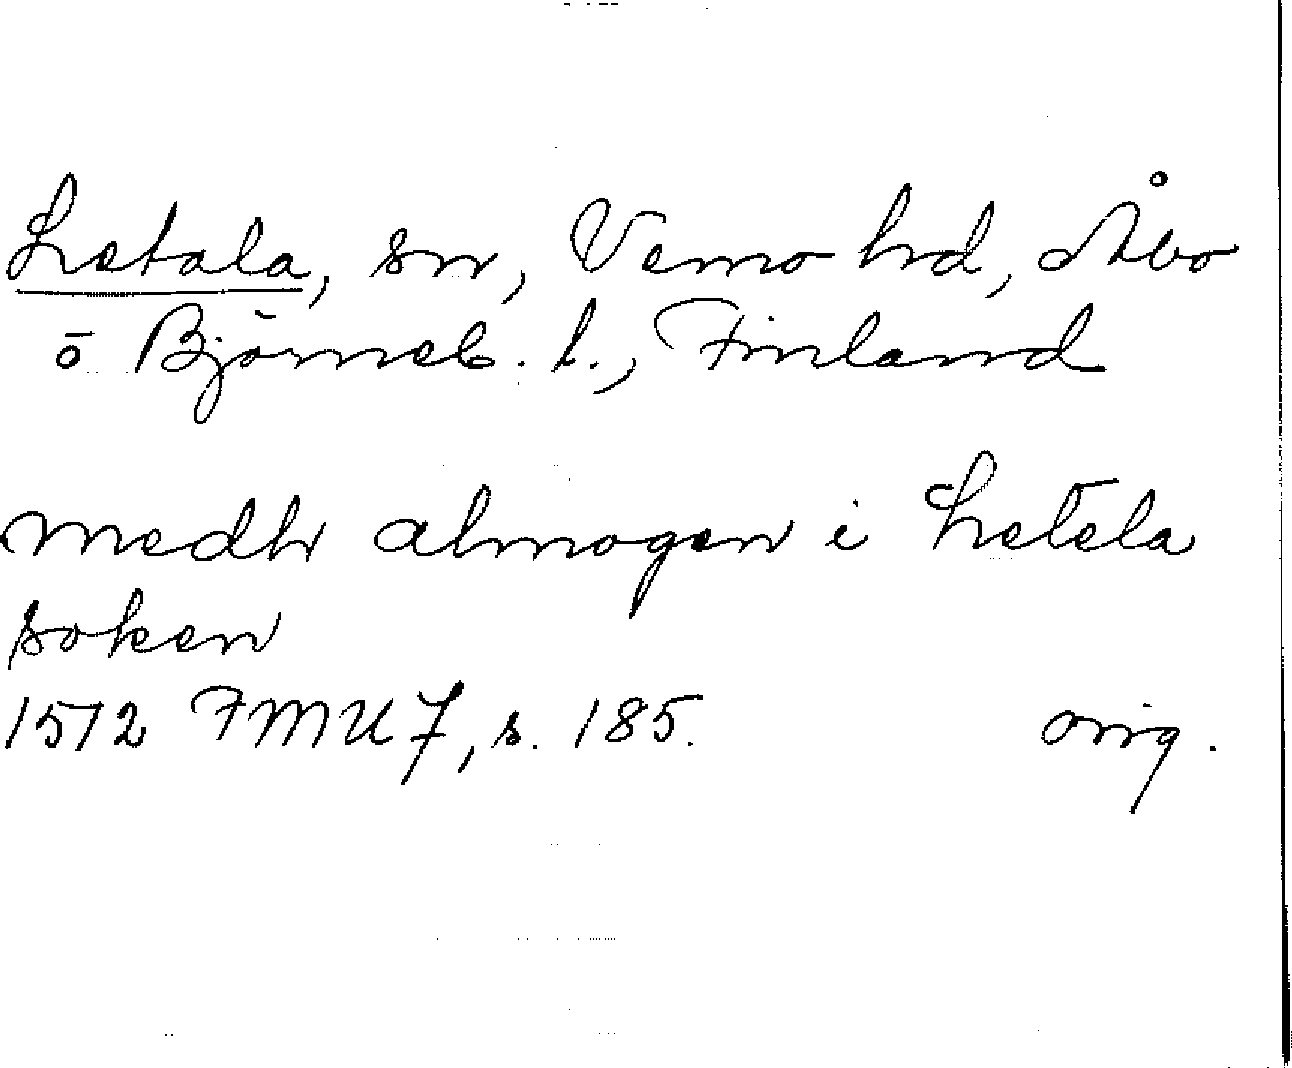 Letala, sn, Vemo hd, Åbo
o Björneb. l., Finland
medh almogen i Letela
soken
1512 FMU 7, s. 185. orig.